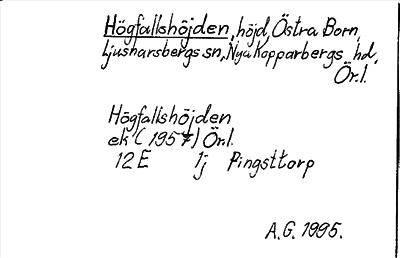 Högfallshöjden, höjd, Östra Born,
Ljusnarsbergs sn, Nya Kopparbergs hd,
Ör.l.
Högfallshöjden
ek (1957) Ör.l.
12 E 1j Pingsttorp
A.G. 1995.